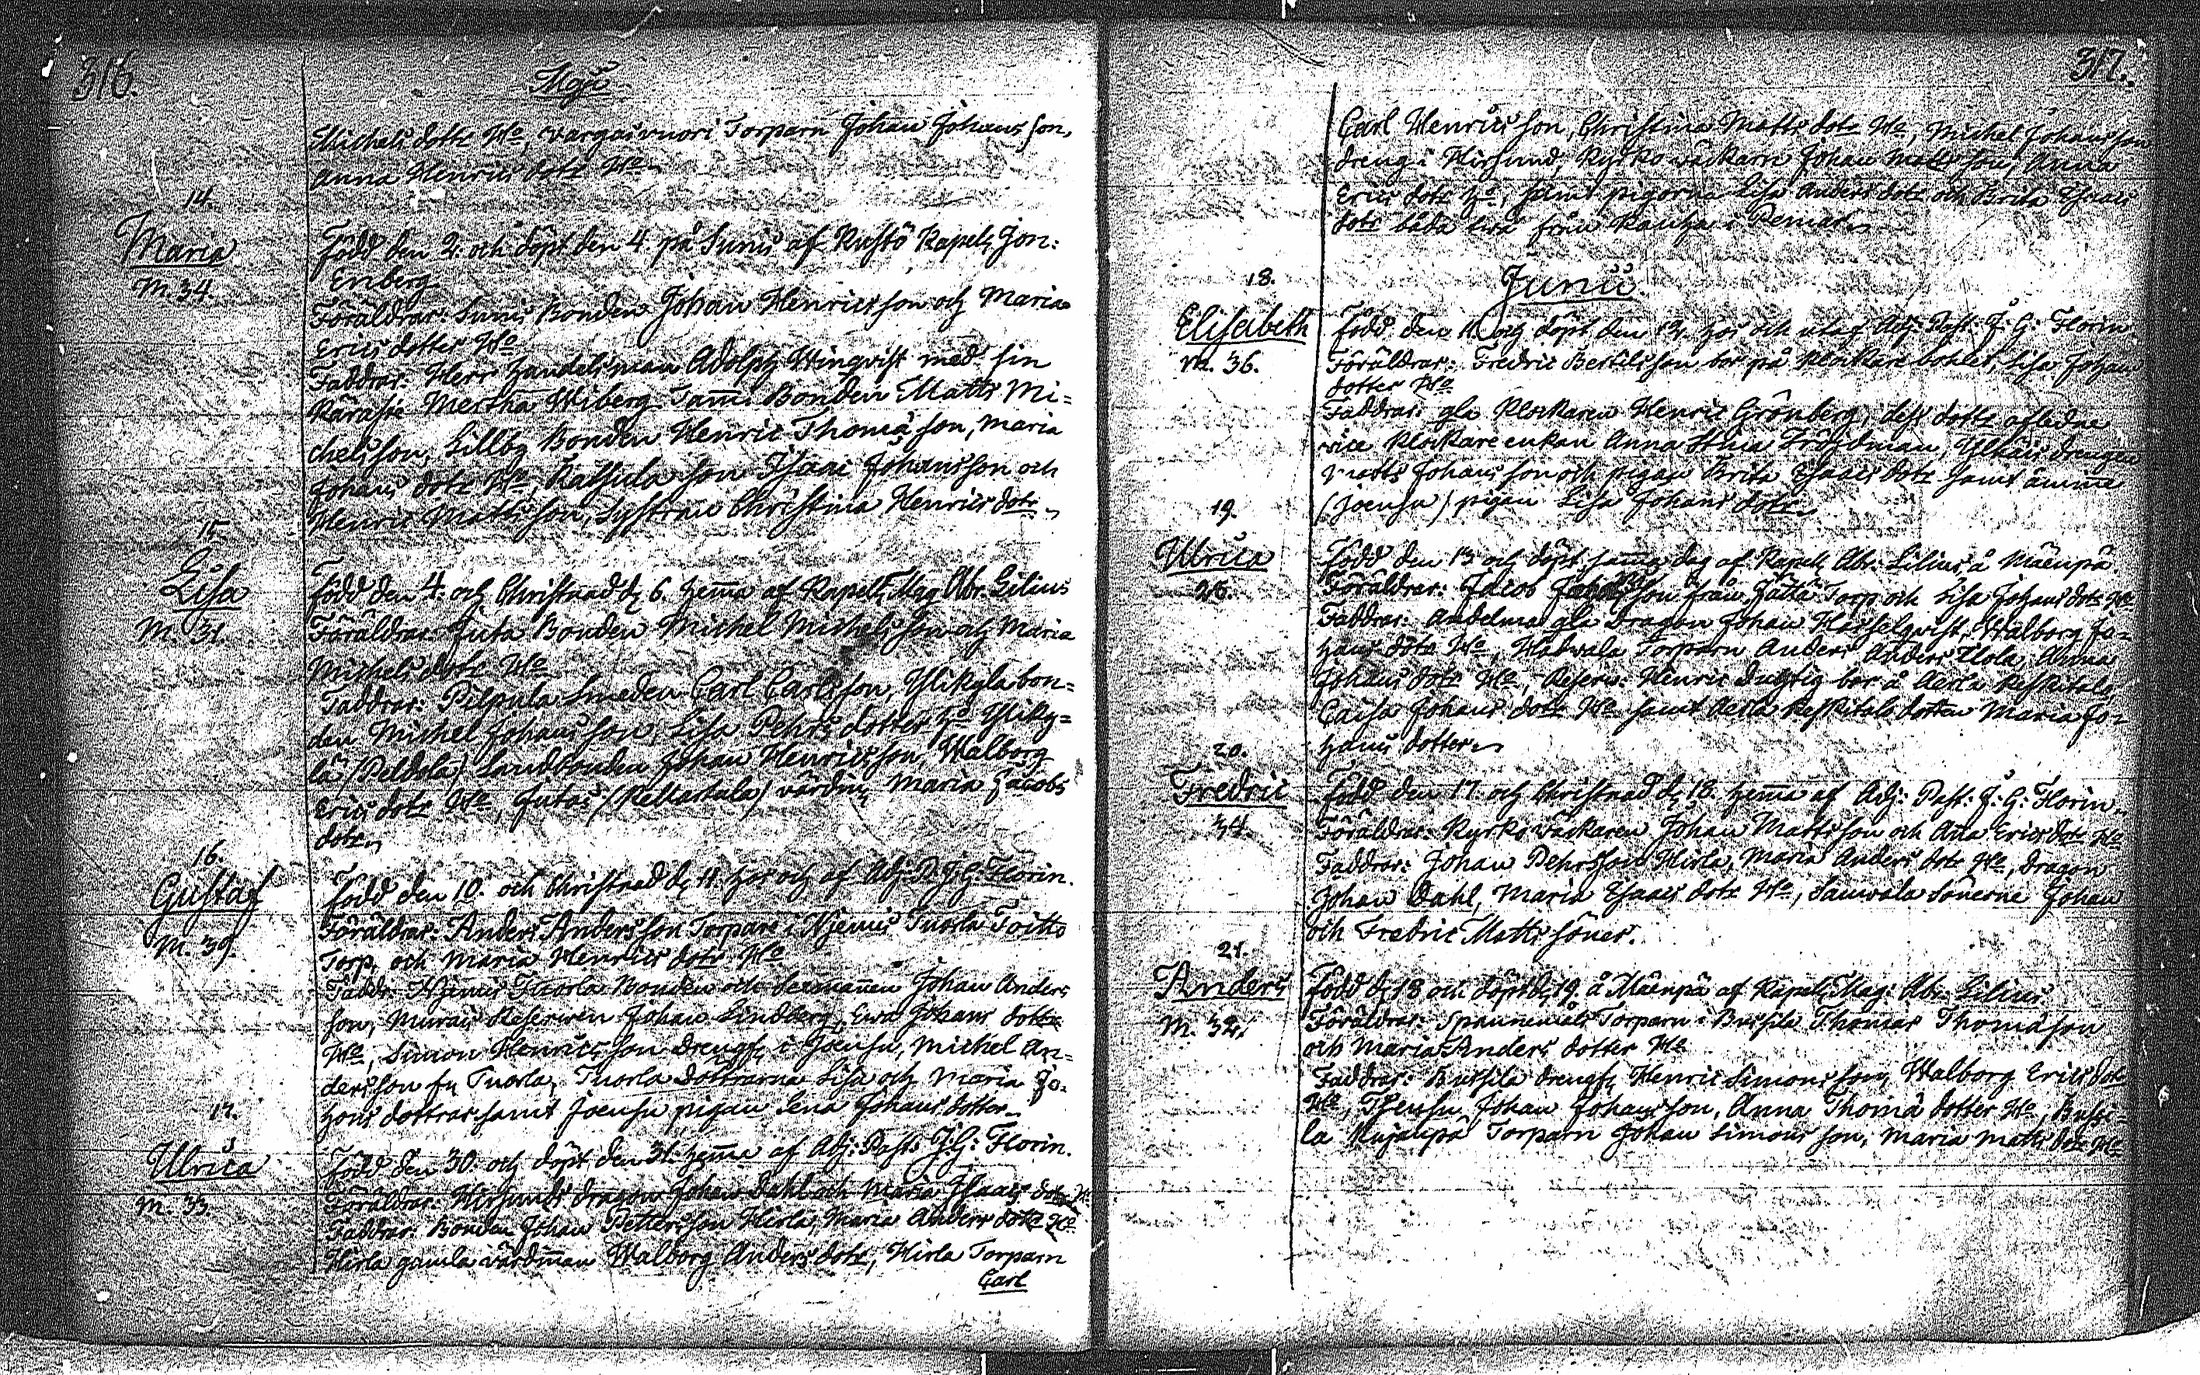 316.
Maji
Michels dotr Ho, Vargasvuori Torparn Johan Johans son,
Anna Henrics dotr Ho
14.
Maria
M. 34.
Född den 2. och döpt den 4. på Sunis af Kustö Kapel. Jon:
Enberg
Föräldrar: Sunis Bonden Johan Henricsson och Maria
Erics dotter Ho
Faddrar: Herr Handelsman Adolph Winqvist med sin
Käraste Mertha Wiberg Bonden Matts Mi=
chelsson, Lillby Bonden Henric Thomä son, Maria
Johans dotr Ho, son Isaac Johansson och
Henric Mattsson, Systran Christina Henrics dotr.
15.
Lisa
M. 31.
Född den 4. och Christnad d. 6. hema af Kapell. Mag. Abr. Lilius
Föräldrar: Juta Bonden Michel Michels son och Maria
Michels dotr Ho
Faddrar: Pilpula Smeden Carl Carlsson, Ylikylä bon=
den Michel Johansson, Lisa Pehrs dotter Ho Yliky=
lä (Peldola) Landbonden Johan Henricsson, Walborg
Erics dotr Ho, Jutas (Keltarhala) värdin, Maria Jacobs
dotr
16.
Gustaf
M. 39.
Född den 10. och Christnad d. 11. hos och af Adj. P. J. G: Florin.
Föräldrar: Anders Andersson Torpare i Njemis Tuorla Toitto
Torp, och Maria Henrics dotr Ho
Faddr: Njemis Tuorla Bonden och Johan Anders
son, Reserven Johan Lindberg, Ewa Johans dotr
Ho, Simon Henrics son drengf. i Joensu, Michel An=
dersson fr. Tuorla, Tuorla döttrarna Lisa och Maria Jo=
hans döttrar samt Joensu pigan Lena Johans dotter
17.
Ulrica
M. 33.
Född den 30. och döpt den 31. hema af Adj: Past: J: G: Florin.
Föräldrar: Hirsunds dragon Johan Dahl och Maria Isaacs dotr Ho
Faddrar: Bonden Johan Pettersson Hirla, Maria Anders dotr Ho
Hirla gamla värdinnan Walborg Anders dotr, Hirla Torparn
Carl
317.
Carl Henricsson, Christina Matts dotr Ho, Michel Johansson
dreng i Hirsund, Kyrko wäckarn Johan Mattsson, Anna
Erics dotr Ho, samt pigorna Lisa Anders dotr och Brita Esaais
dotr båda två från i Pemar
Junii
18.
Elisabeth
M. 36.
Född den 11. och döpt den 13. hos och utaf Adj: Past: J: G: Florin
Föräldrar: Fredric Bertilsson bor på Klockare bohlet, Lisa Johan
dotter Ho
Faddrar: gla Klockaren Henric Grönberg, dess dotr afledne
vice klockare enkan Anna Stina Fröjdman, drengen
Matts Johansson och pigan Brita Esaacs dotr samt
(Joensu) pigan Lisa Johans dotr
19.
Ulrica
26.
Född den 13 och döpt samma dag af Kapell. Abr: Lilius å Mäenpä.
Föräldrar: Jacob son från Torp och Lisa Johans dotr Ho
Faddrar: Andelma gla Dragon Johan Hasselqvist, Walborg Jo=
hans dotr Ho, Torparn Anders Anders, Anna
Johans dotr Ho, Reserv: Henric Dugtig bor å Aerla Keskitalo
Caisa Johans dotr Ho samt Aerla Keskitalo dotren Maria Jo=
hans dotter
20.
Fredric
34.
Född den 17. och Christnad d. 18. hema af Adj: Past: J: G: Florin
Föräldrar: Kyrko Väckaren Johan Mattsson och Ana Erics dotr Ho
Faddrar: Johan Pehrsson Hirla, Maria Anders dotr Ho, dragon
Johan Dahl, Maria Esaacs dotr Ho, Sauwala Sönerne Johan
och Fredric Matts söner.
21.
Anders
M. 32.
Född d. 18 och döpt d. 19. å Mäenpä af Kapell. Mag: Abr: Lilius
Föräldrar: Torparn i Bussila Thomas Thomä son
och Maria Anders dotter Ho
Faddrar: Bussila drengf. Henric Simonsson, Walborg Erics dotr
Ho, Johan Johansson, Anna Thomä dotter Ho, Bussi=
la Kujanpä Torparn Johan Simonsson, Maria Matts dotr Ho